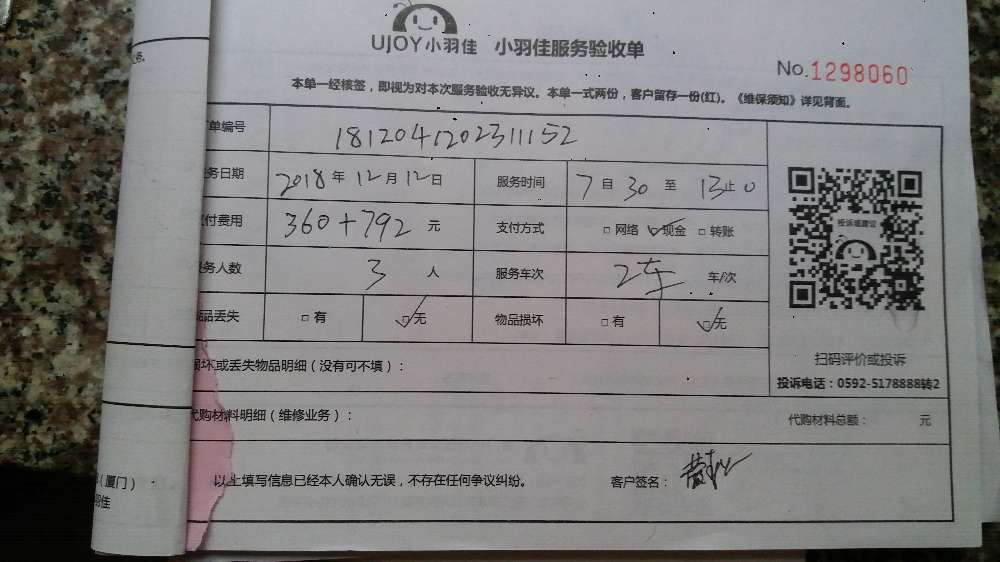 UJOY小羽佳 小羽佳服务验收单
No.1298060
本单一经核签，即视为对本次服务验收无异议。本单一式两份，客户留存一份(红)。《维保须知》详见背面。
单编号 181204120231115​2
务日期 2018年12月12日 服务时间 7自30至13止0
付费用 360+792元 支付方式 □网络 ☑现金 □转账
务人数 3人 服务车次 2车 车/次
品丢失 □有 ☑无 物品损坏 □有 ☑无
投诉或建议
扫码评价或投诉
投诉电话：0592-5178888转2
损坏或丢失物品明细（没有可不填）：
代购材料明细（维修业务）： 代购材料总额： 元
（厦门）
羽佳
以上填写信息已经本人确认无误，不存在任何争议纠纷。 客户签名：